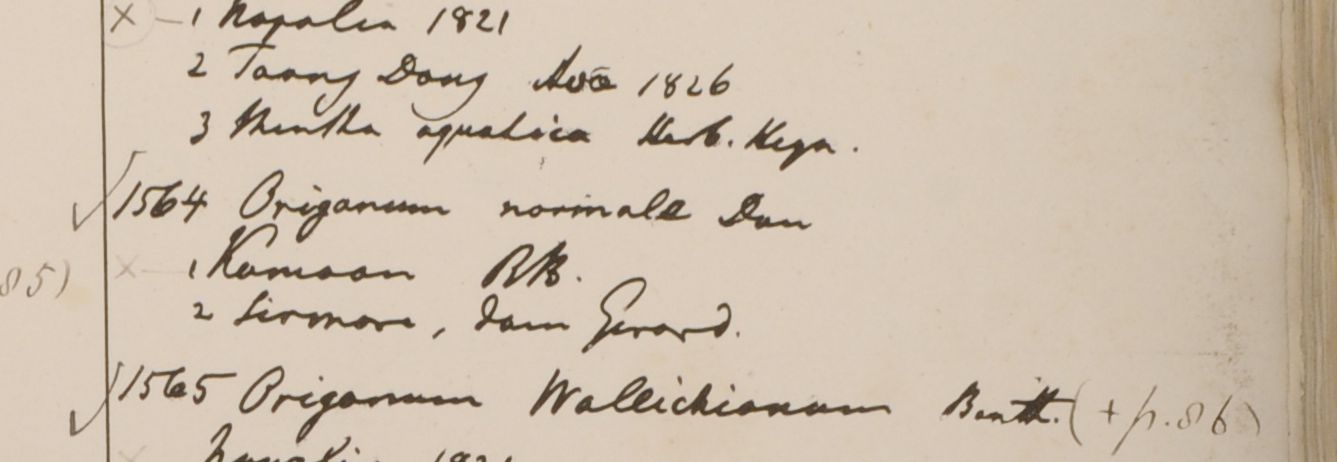 × 1 Napalia 1821
2 Taong Dong Ava 1826
3 Mentha aquatica Herb. Heyn.
1564 Origanum normale Don
85) × 1 Kamaon RB.
2 Sirmore, dam Gerard.
1565 Origanum Wallichianum Benth. (+ p. 86)
1821